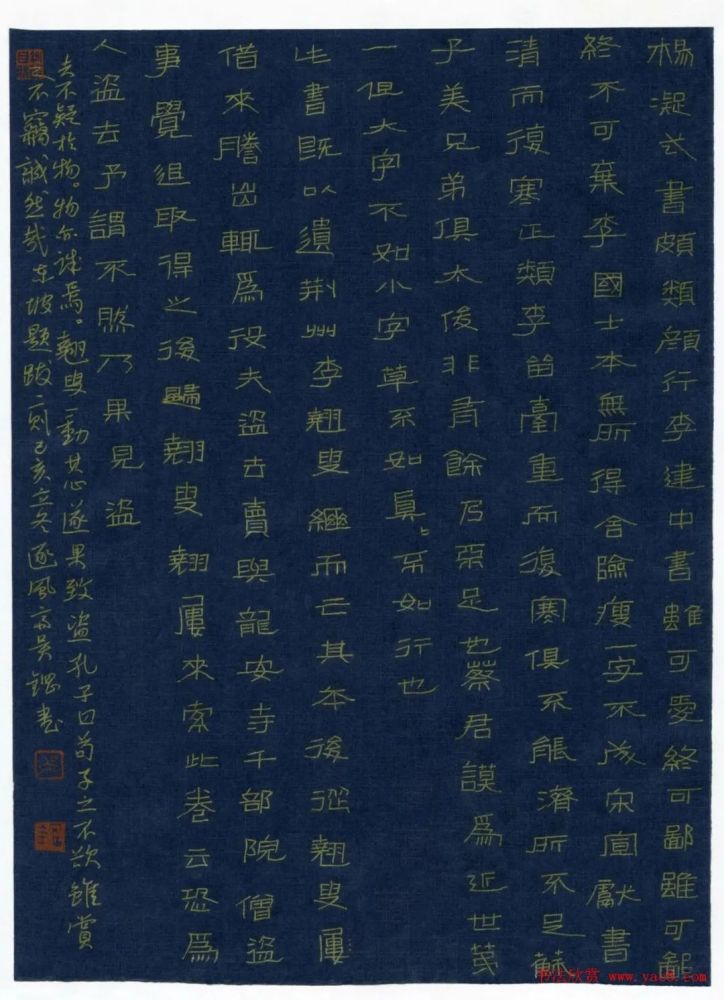 楊凝式書頗類顔行李建中書雖可愛終可鄙雖可鄙
終不可棄李國士本無所得舍險瘦一字不成宋宣獻書
清而復寒正類李留臺重而復寒俱不能濟所不足蘇
子美兄弟俱太俊非有餘乃不足也蔡君謨為近世第
一但大字不如小字草不如真真不如行也
此書既以遺荆州李翹叟繼而亡其本後從翹叟屢
借來謄出輒為役夫盜去賣與龍安寺千部院僧盜
事覺追取得之後歸翹叟翹屢來索此卷云恐為
人盜去予謂不然乃果見盜
去不疑於物。物亦誠焉。翹叟一動其心遂果致盜孔子曰苟子之不欲雖賞
之不竊誠然哉東坡題跋二則己亥立冬逐風齋吳鋼書
书法欣赏 www.yac8.com